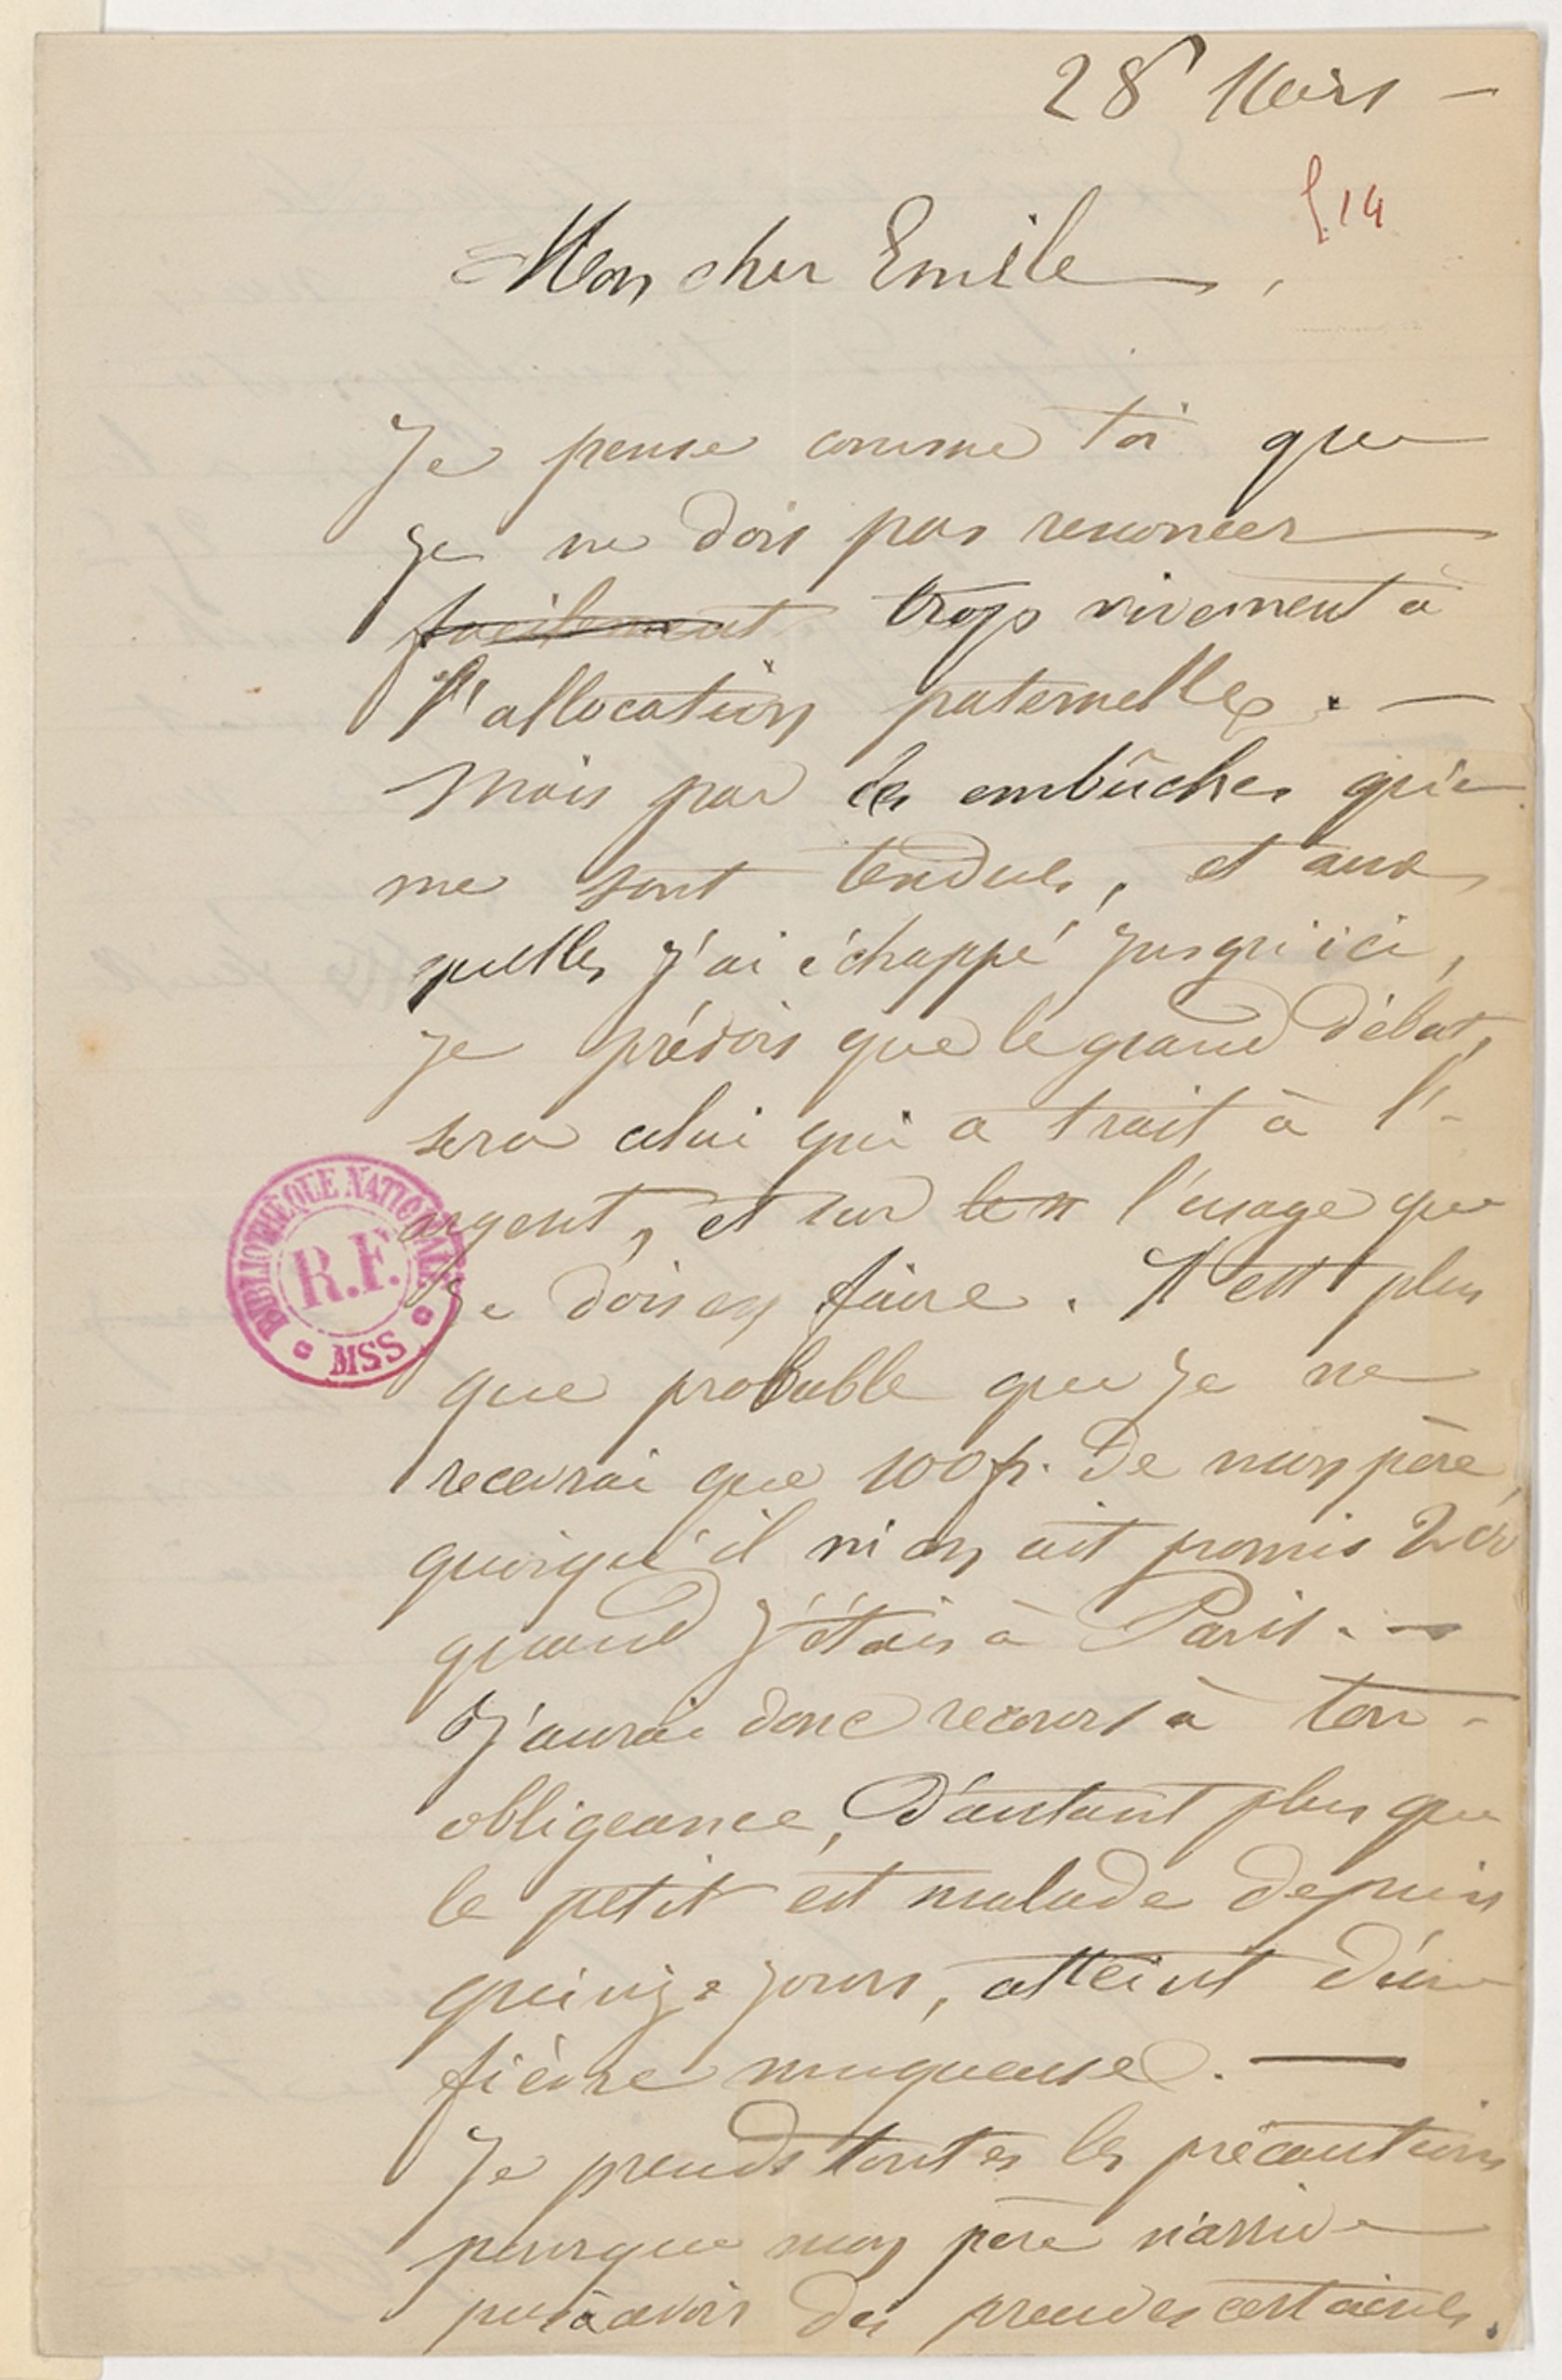 28 Mars —
514
Mon cher Emile,
Je pense comme toi que
je ne dois pas renoncer
facilement trop vivement à
l'allocation paternelle. —
Mais par les embûches qui
me sont tendues, et aux
quelles j'ai échappé jusqu'ici,
je prévois que le grand débat,
sera celui qui a trait à l'-
argent, et sur l'usage que
je dois en faire. Il est plus
que probable que je ne
recevrai que 100 f. de mon père,
quoiqu'il m'en ait promis 200
quand j'étais à Paris. —
J'aurai donc recours à ton
obligeance, d'autant plus que
le petit est malade depuis
quinze jours, atteint d'une
fièvre muqueuse. —
Je prends toutes les précautions
pourque mon père n'arrive
pas à avoir des preuves certaines.
BIBLIOTHÈQUE NATIONALE
R.F.
MSS